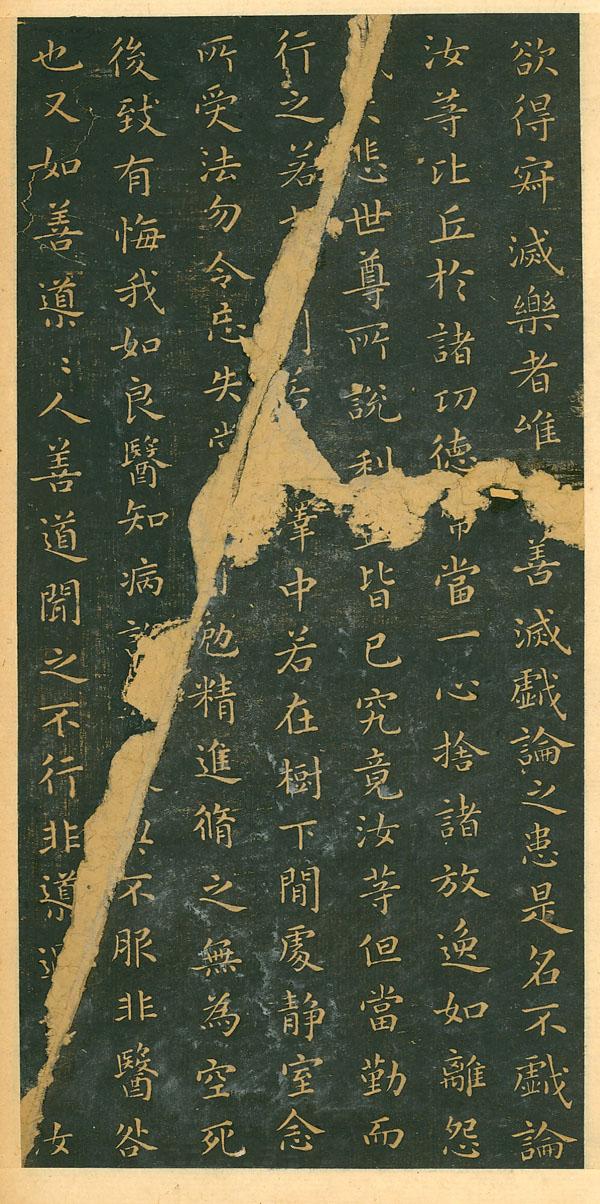 欲得寂滅樂者唯善滅戱論之患是名不戱論
汝等比丘於諸功德常當一心捨諸放逸如離怨
悲世尊所說利皆已究竟汝等但當勤而
行之若若澤中若在樹下閒處静室念
所受法勿令忘失勉精進脩之無為空死
後致有悔我如良醫知病不服非醫咎
也又如善導〻人善道聞之不行非導過汝